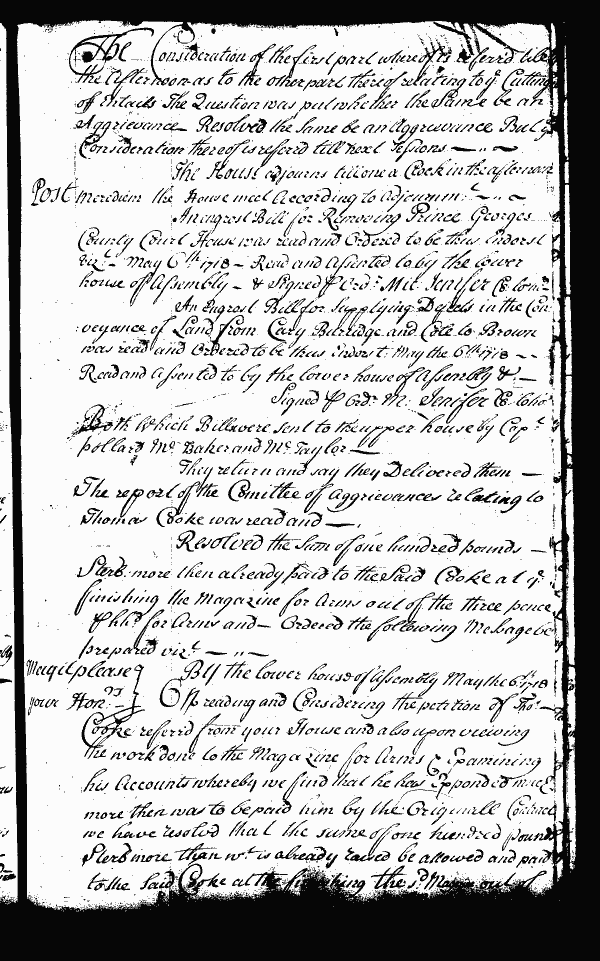 The Consideration of the first part whereof is referrd till
the Afternoon as to the other part thereof relating to ye Cutting
off Entails The Question was put whether the Same be an
Aggrievance Resolved the Same be an Aggrievance But ye
Consideration thereof is referrd till next Sessions
The House adjourns till one a Clock in the afternoon
Post meridiem the House meet According to Adjournmt
An ingrost Bill for Removeing Prince Georges
County Court House was read and Ordered to be thus Endorst
vizt May 6th 1718 - Read and Assented to by the lower
house of Assembly - & Signed P Ordr Mit Jenifer Cl
An Engrost Bill for Supplying Deeds in the Con
veyance of Land from Cary Burridge and Cole to Brown
was read and Ordered to be thus Endorst May the 6th 1718 - -
Read and Assented to by the lower house of Assembly & -
Signed P Ordr M: Jenifer Cl
Both Which Bills were sent to the upper house by Capt
pollard Mr Baker and Mr Taylor
They return and say they Delivered them
The report of the Comittee of Aggrievances relating to
Thomas Cooke was read and
Resolved the Sum of one hundred pounds
Sterb: more then already paid to the Said Cooke at ye
finishing the Magazine for Arms out of the three pence
P hhd for Arms and - Ordered the following Message be
prepared vizt
May it please By the lower house of Assembly May the 6th 1718
your Honrs On reading and Considering the petition of Thos
Cooke referrd from your House and also upon viewing
the work done to the Magazine for Arms & Examining
his Accounts whereby we find that he has Expended much
more then was to be paid him by the Originall Contract
we have resolvd that the sume of one hundred pounds
Sterb more than wt is already raised be allowed and paid
to the Said Cooke at the finishing the sd out of